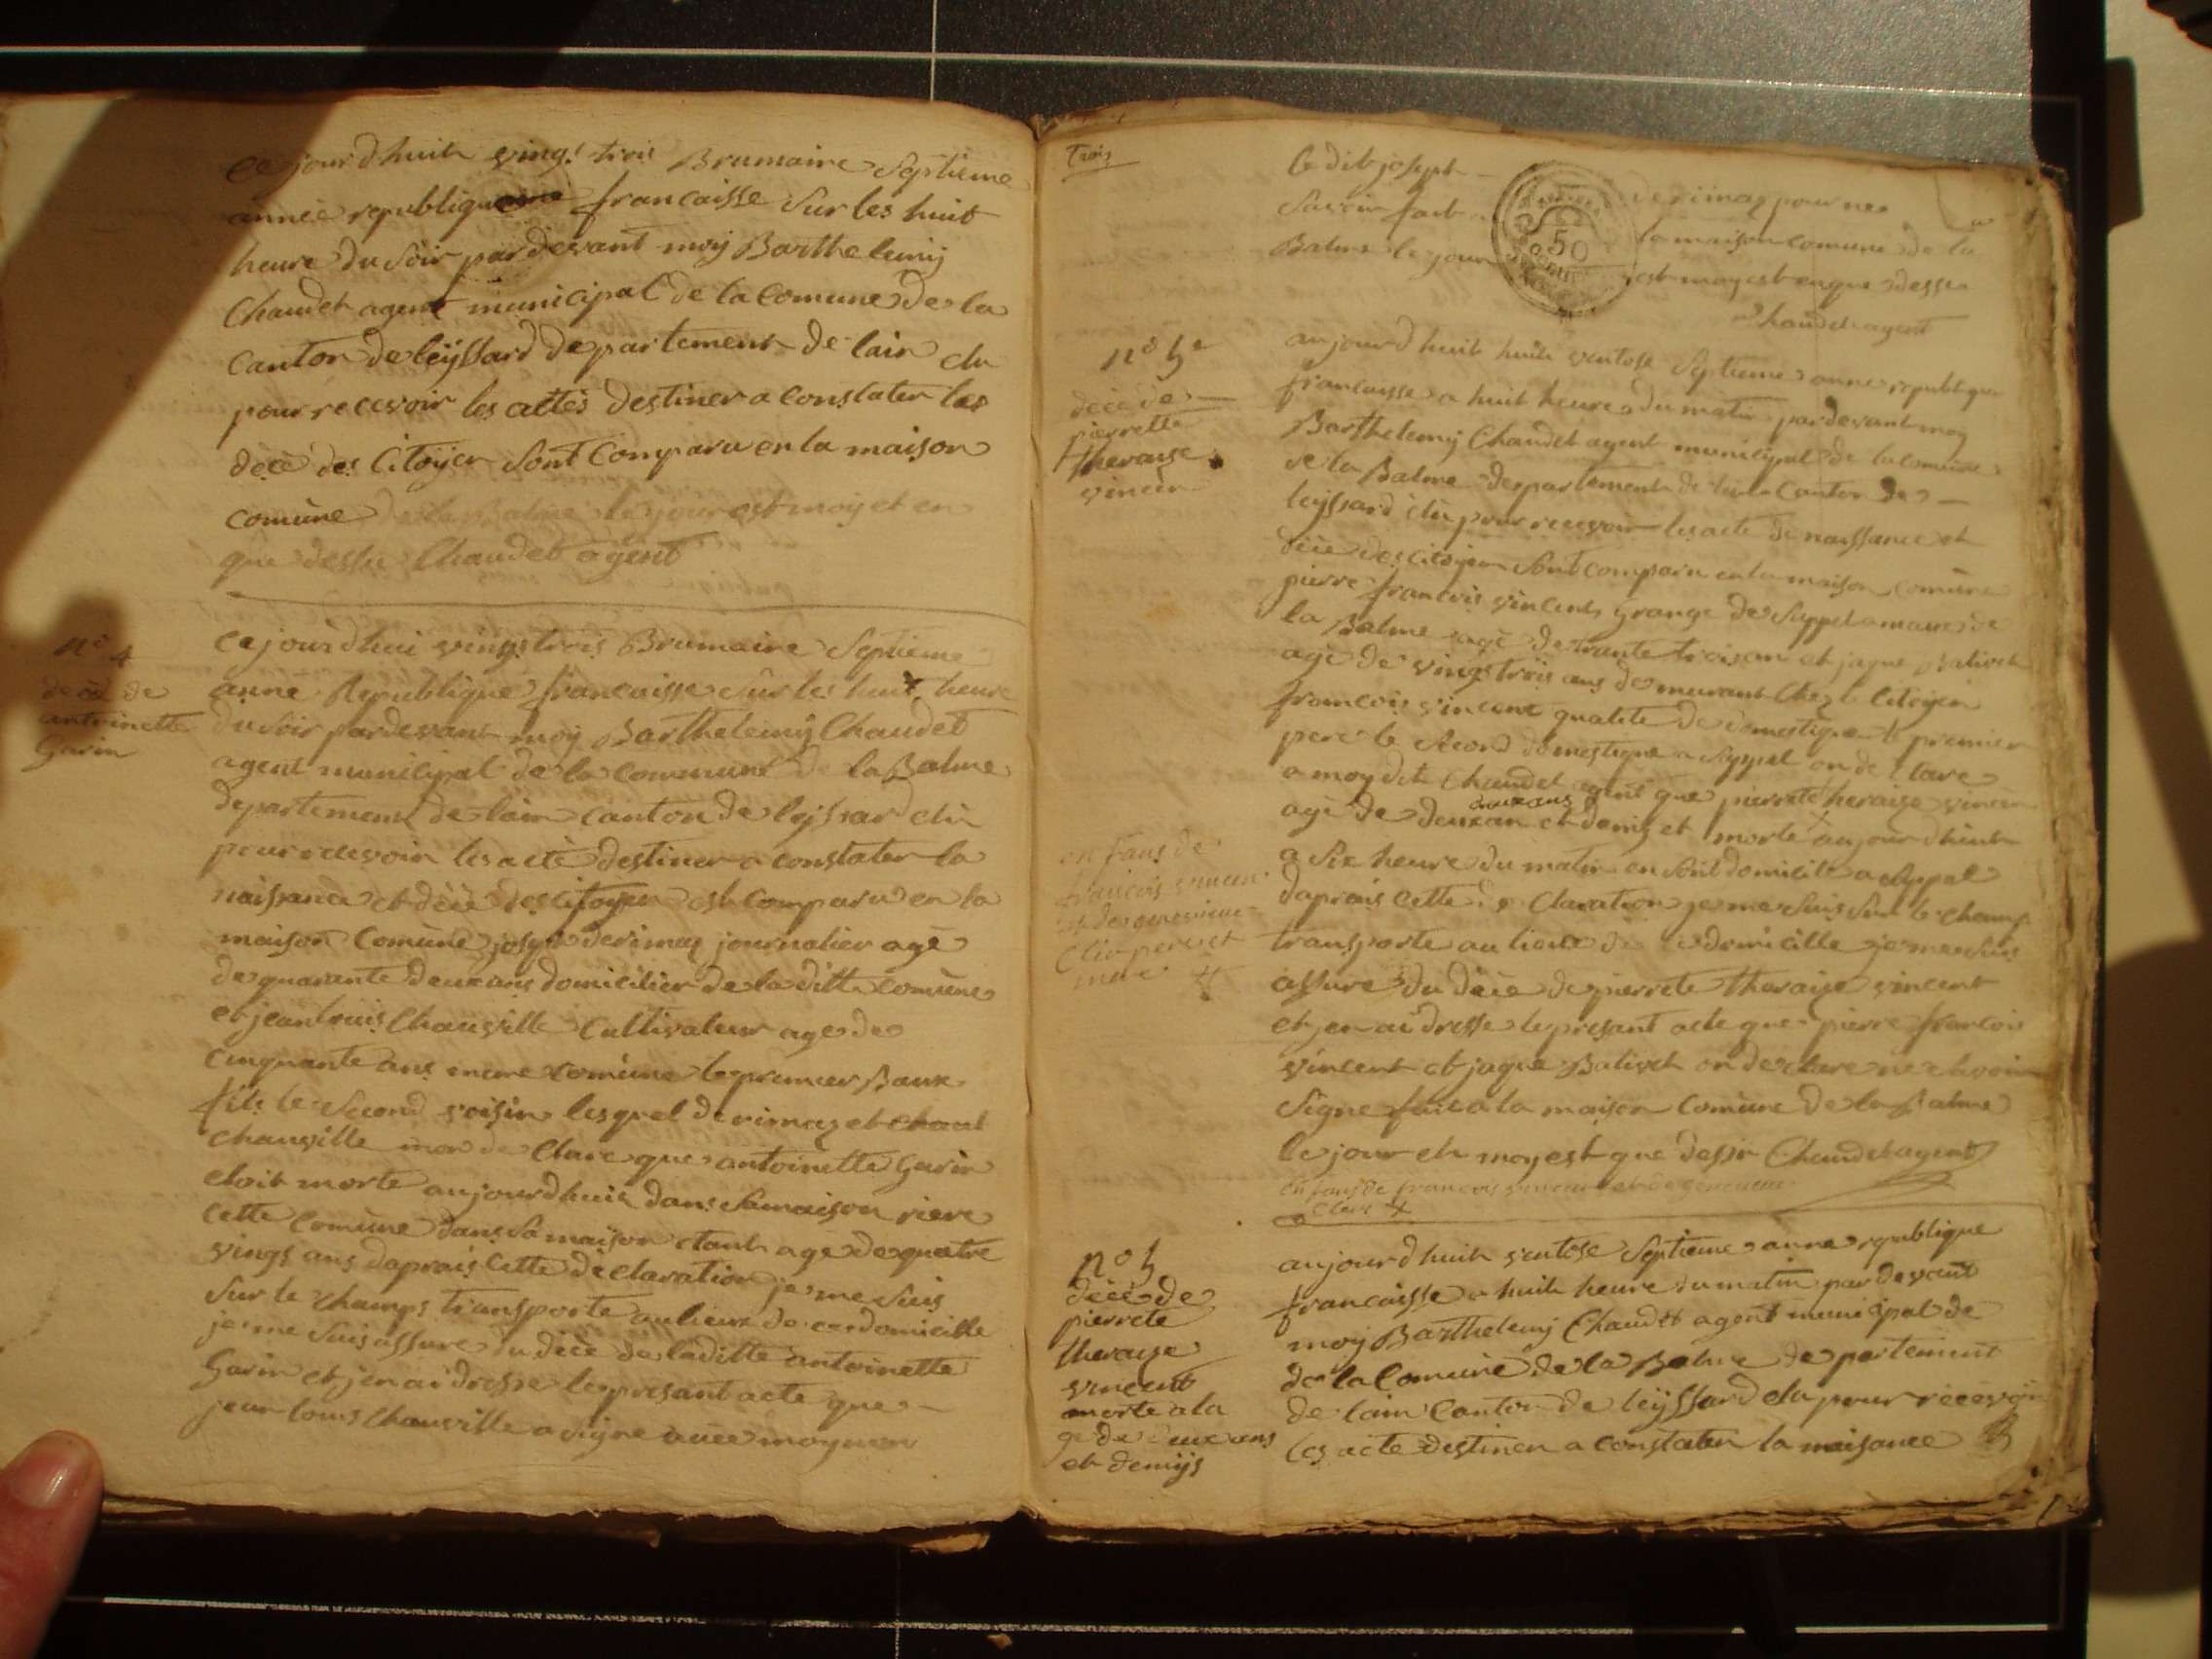 Ce jour dhuit vingt trois Brumaire Septieme
année republiquenne francaisse Sur les huit
heure du Soir par devant moy Barthelemij
Chaudet agent municipal de la Comune de la
Canton de leijssard departement de lain elu
pour recevoir les actes destiner a Constater les
déce des Citoijen Sont Comparu en la maison
comùne de la Balme le jour est moij et en
que dessu Chaudet agent
n° 4
decè de
antoinette
Garin
Ce jourdhui vingt trois Brumaire Septieme
anne Republique francaisse sur les huit heure
du Soir par devant moij Barthelemij Chaudet
agent municipal de la commune de la Balme
departement de lain Canton de lejssard elù
pour recevoir les acte destiner a constater la
naissance et décè des citoyen est Comparu en la
maison Comùne joseph derimaz journalier agé
de quarante deux ans domicilier de la ditte comùne
et jean louis Chauville Cultivateur age de
Cinquante ans meme comùne le premier Baux
fils le Second voisin lesquel derimaz et chaul
chauville mon de Clare que antoinette Garin
etoit morte aujourdhuit dans Samaison riere
cette Comùne dans Sa maison etant age de quatre
vings ans daprais Cette déclaration je me Suis
Sur le champs transporte au lieux de ce domicille
je me Suis assure du déce de laditte antoinette
Garin et jen ai dresse le presant acte que
jean louis Chauville a Signe avec moy non
Trois
le dit joseph derimaz pour ne
Savoir fait la maison comune de la
Balme le jour est moy est en que dessu
Chaudet agent
n° 5
décè de
pierrette
theraise
vincen
aujourdhuit huit ventose Septieme anne republique
francaisse a huit heure du matin par devant moy
Barthelemij Chaudet agent municipal de la comùne
de la Balme departement de lain Canton de
leijssard elù pour recevoir les acte de naissance et
décè des citoijen Sont comparu en la maison comùne
pierre francois vincent grange de
la Balme agé de trante trois an et jaque Balivet
agé de vingt trois ans demeurant Chez le Citoijen
francois vincent qualite de domestique le premier
pere le Second domestique a on declare
a moy dit Chaudet agent que pierrete theraise vincen
deux ans
age de deux an et demis et morte aujourdhuit
a Six heure du matin en Sont domicile a
daprais cette declaration je me Suis Sur le champ
transporte au lieux de ce domicille je me Suis
assure du décè de pierrete theraise vincent
et jen ai dresse le presant acte que pierre francois
vincent et jaque Balivet on declare ne
Signe fait a la maison Comùne de la Balme
le jour et moy est que dessu Chaudet agent
en fans de francois vincent et de genevieve
Clair
en fans de
francois vincen
et de genevieve
pere et
mere
n° 5
décè de
pierrete
theraise
vincent
morte a la
ge de deux ans
et demijs
aujourdhuit ventose Septieme anne republique
francaisse a huit heure du matin par devant
moy Barthelemij Chaudet agent municipal de
de la Comùne de la Balme departement
de lain Canton de leijssard elu pour recevoir
les acte destiner a constater la naisance